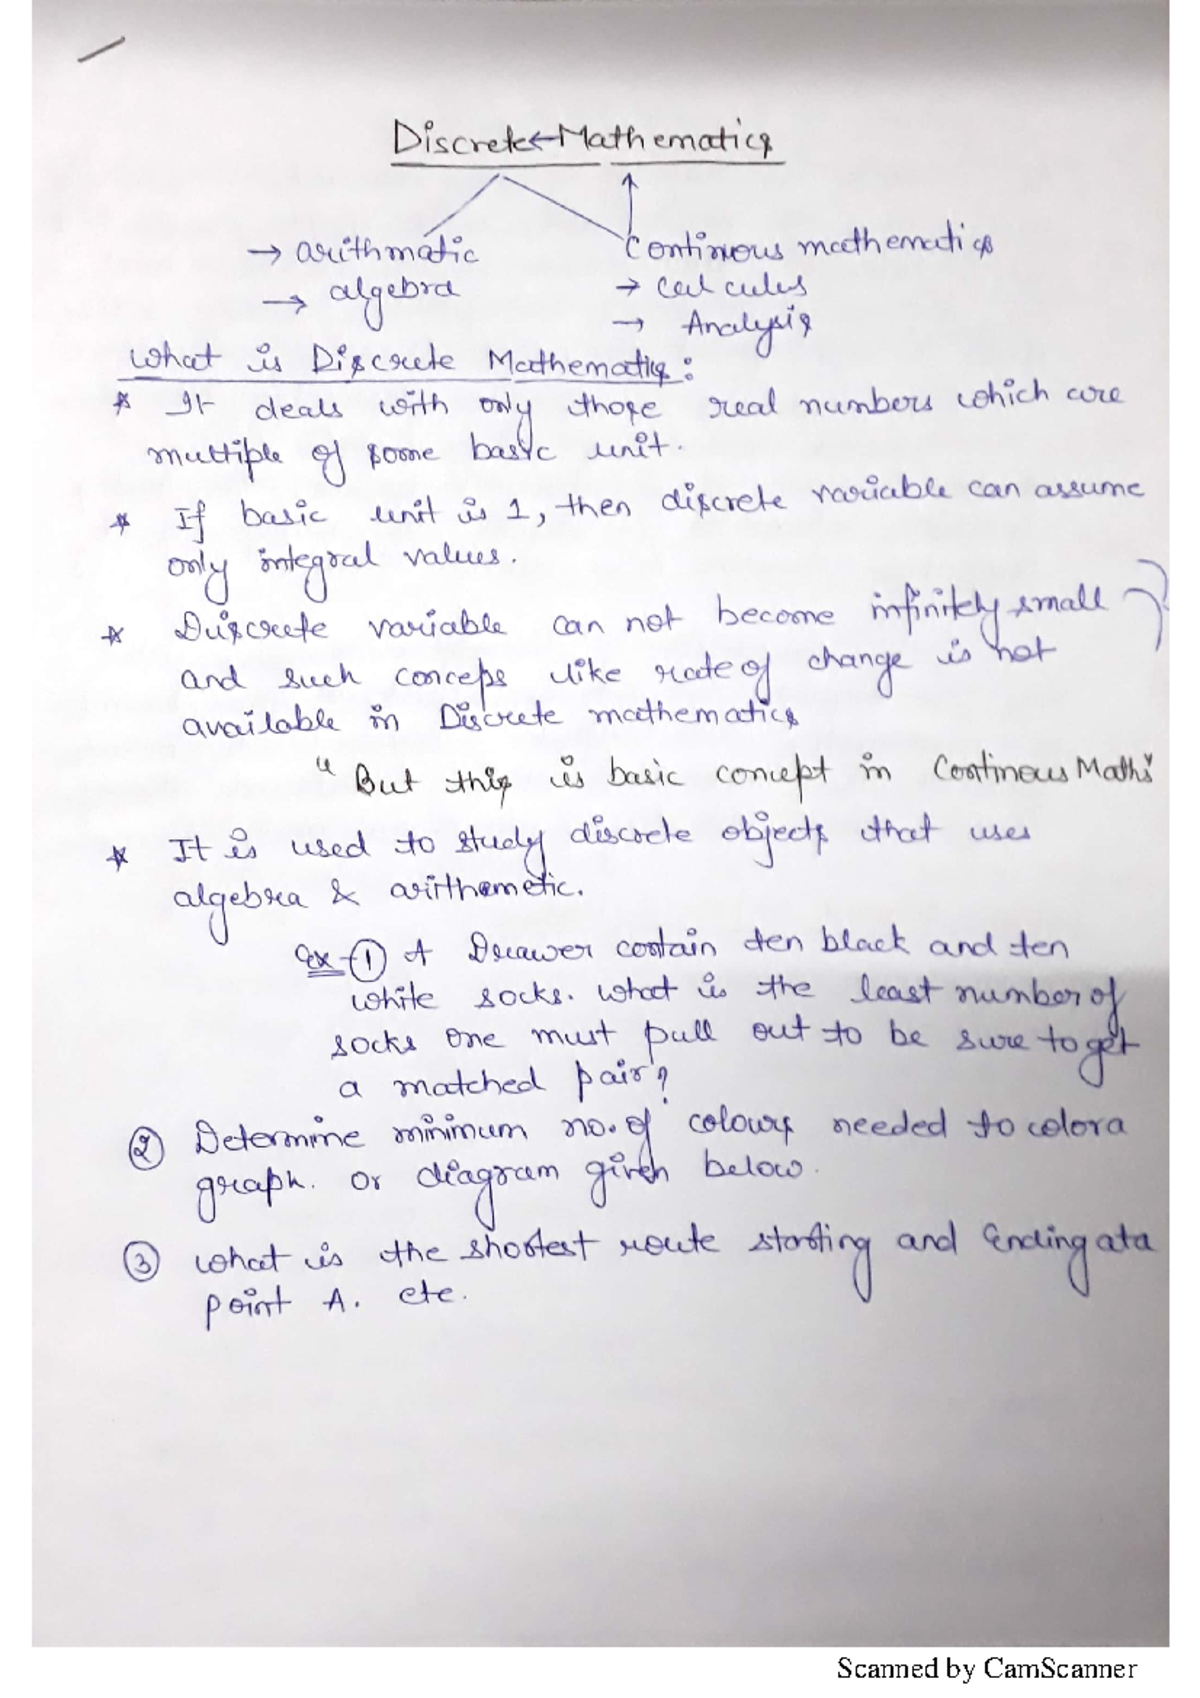 Discrete←Mathematics
→ arithmatic
→ algebra
Continuous mathematics
→ Calculus
→ Analysis
What is Discrete Mathematics:
* It deals with only those real numbers which are
multiple of some basic unit.
* If basic unit is 1, then discrete variable can assume
only integral values.
* Discrete variable can not become infinitely small
and such conceps like rate of change is not
available in Discrete mathematics
" But this is basic concept in Continous Maths"
* It is used to study discrete objects that uses
algebra & arithemetic.
Ex-① A Drawer contain ten black and ten
white socks. What is the least number of
socks one must pull out to be sure to get
a matched pair?
② Determine minimum no. of colours needed to color a
graph. or diagram given below.
③ What is the shortest route starting and Ending at a
point A. etc.
Scanned by CamScanner